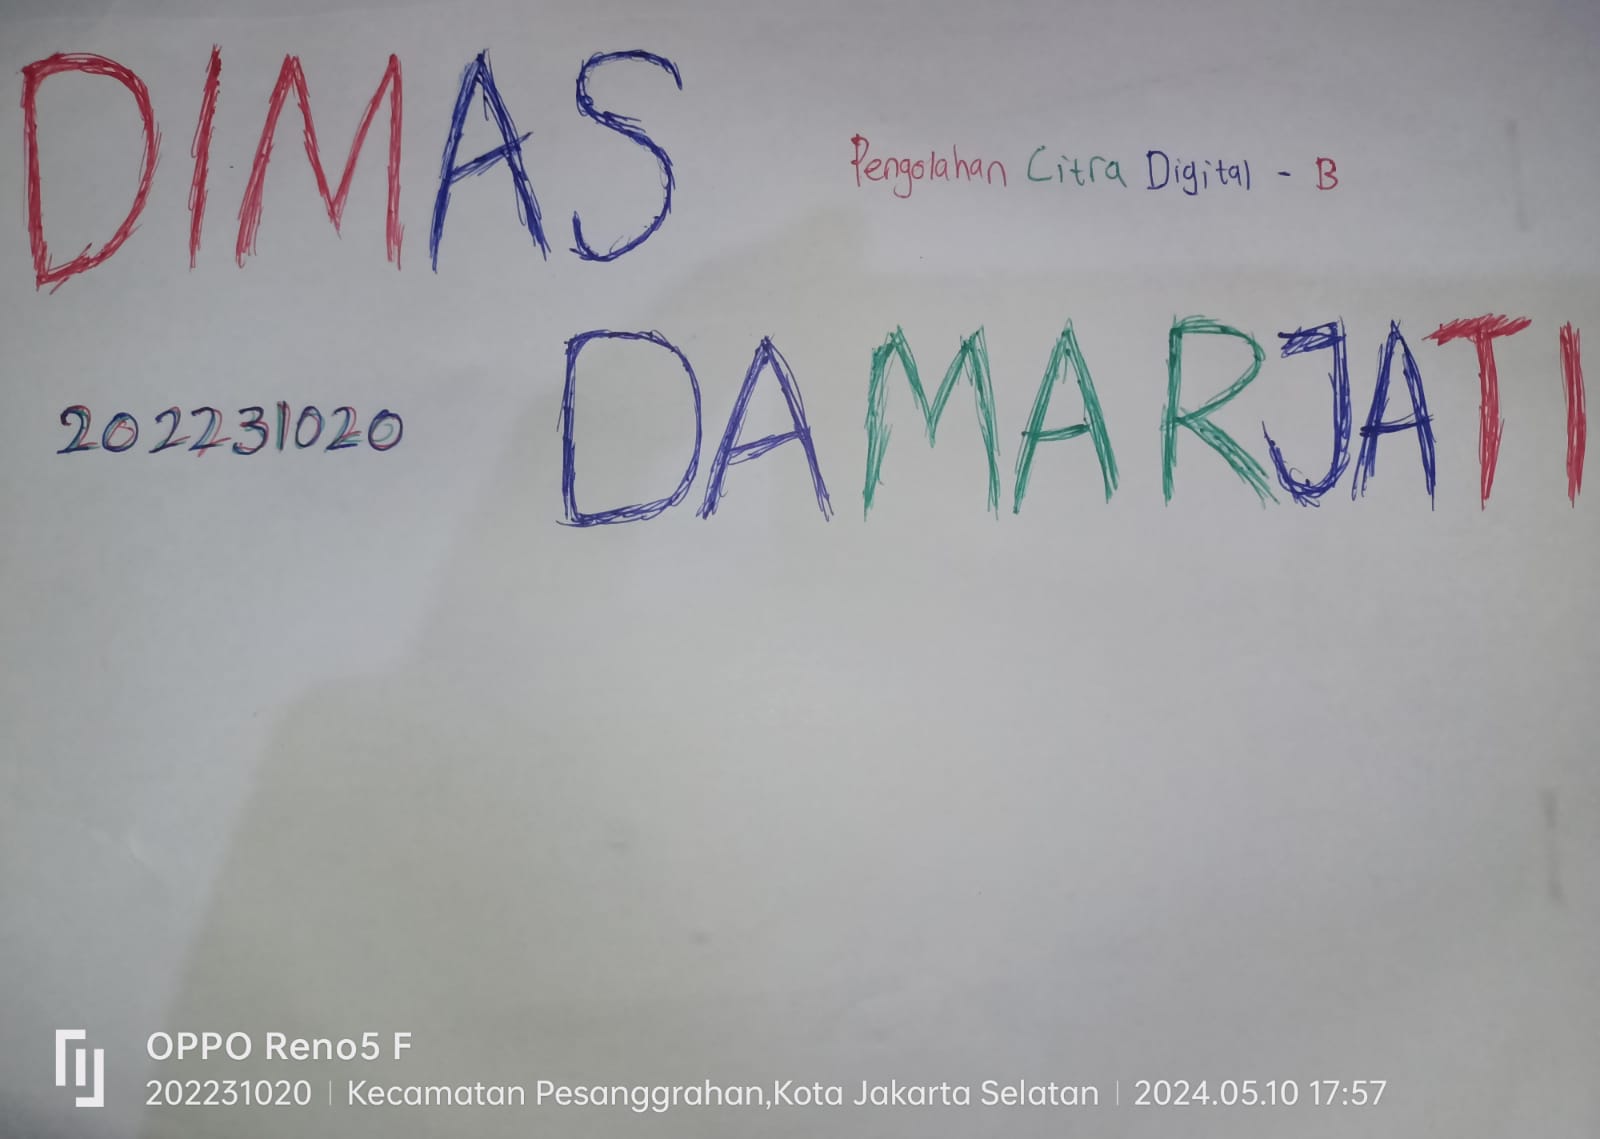 DIMAS
Pengolahan Citra Digital - B
DAMARJATI
202231020
OPPO Reno5 F
202231020 | Kecamatan Pesanggrahan,Kota Jakarta Selatan | 2024.05.10 17:57